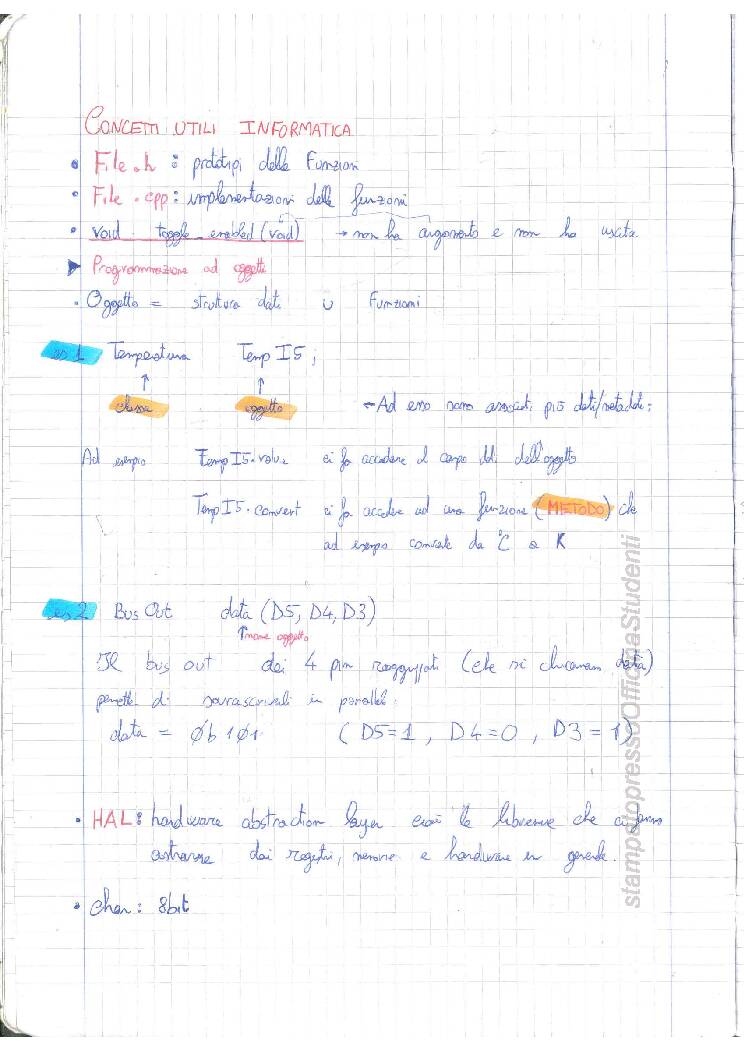 CONCETTI UTILI INFORMATICA
• File.h : prototipi delle Funzioni
• File.cpp : implementazioni delle funzioni
• void toggle_enabled (void) → non ha argomento e non ha uscita
▶ Programmazione ad oggetti
• Oggetto = struttura dati ∪ Funzioni
es 1 Temperatura Temp IS ;
↑ ↑
classe oggetto ← Ad esso sono associati più dati/metadati:
Ad esempio Temp IS.value ci fa accedere al campo dell'oggetto
Temp IS.convert ci fa accedere ad una funzione (METODO) che
ad esempio converte da °C a K
es 2 Bus Out data (D5, D4, D3)
↑ nome oggetto
Il bus out dei 4 pin raggruppati (che si chiamano data)
permette di sovrascriverli in parallelo.
data = 0b101 (D5=1, D4=0, D3=1)
• HAL: hardware abstraction layer cioè le librerie che ci fanno
astrarre dai registri, memorie e hardware in generale.
• char: 8bit
stampatopressoOfficinaStudenti